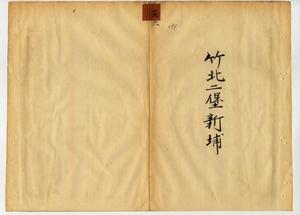 竹北二堡新埔